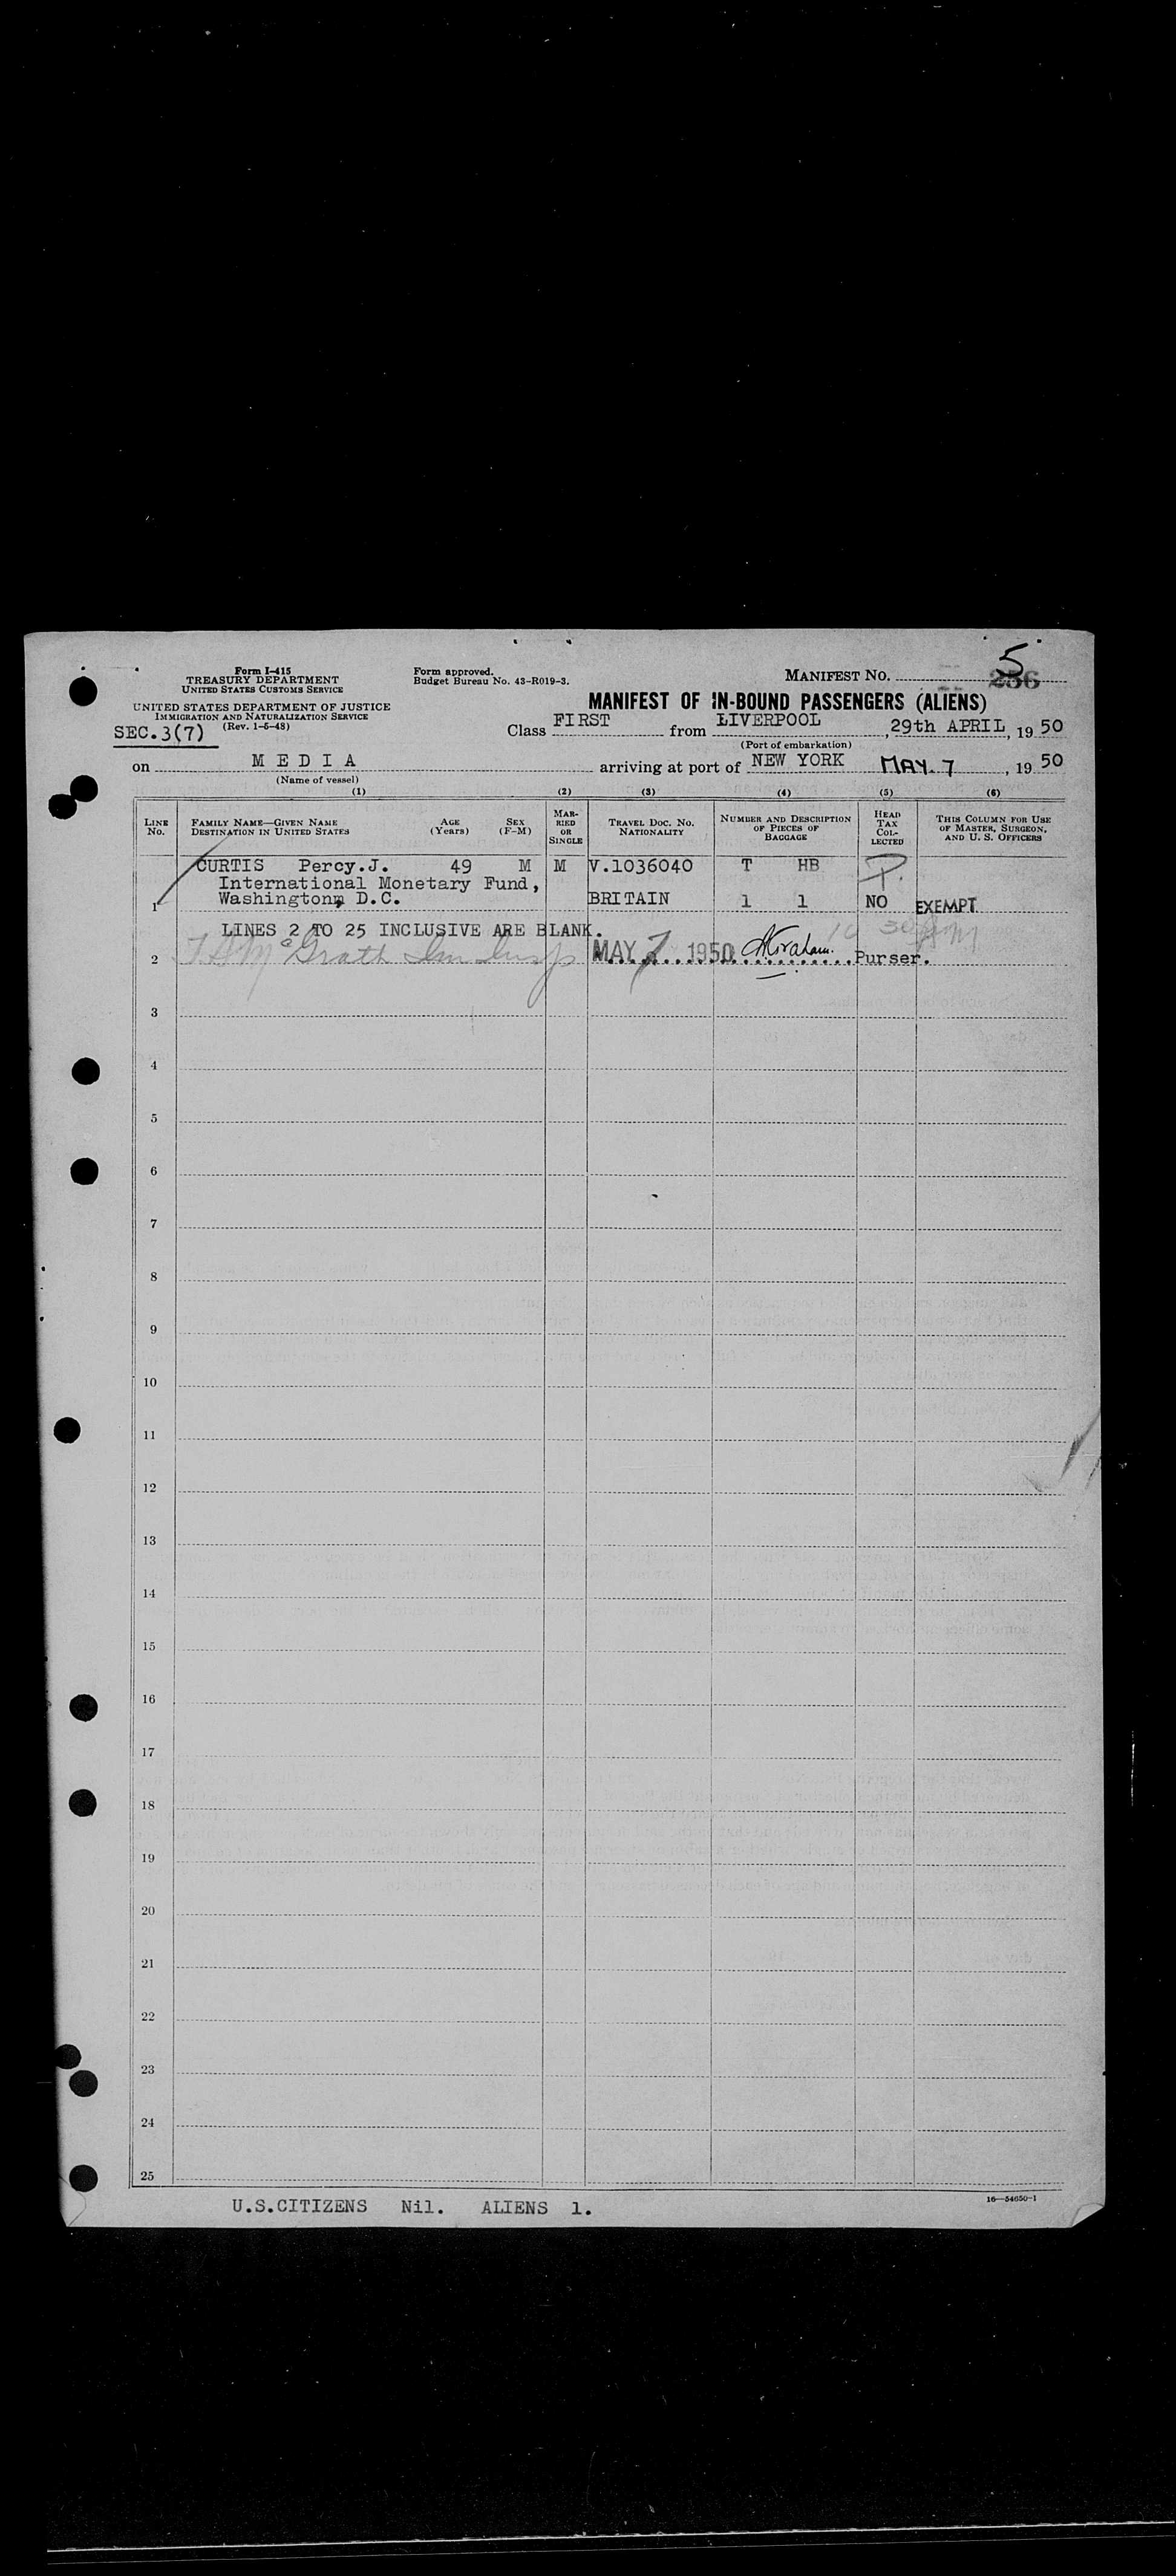 5
Form I-415
TREASURY DEPARTMENT
UNITED STATES CUSTOMS SERVICE
Form approved.
Budget Bureau No. 43-R019-3.
MANIFEST NO. 256
UNITED STATES DEPARTMENT OF JUSTICE
IMMIGRATION AND NATURALIZATION SERVICE
(Rev. 1-6-48)
SEC.3(7)
MANIFEST OF IN-BOUND PASSENGERS (ALIENS)
Class FIRST from LIVERPOOL, 29th APRIL, 19 50
(Port of embarkation)
on M E D I A arriving at port of NEW YORK MAY. 7, 19 50
(Name of vessel)
(1) (2) (3) (4) (5) (6)
LINE No. FAMILY NAME—GIVEN NAME DESTINATION IN UNITED STATES AGE (Years) SEX (F-M) MARRIED OR SINGLE TRAVEL DOC. NO. NATIONALITY NUMBER AND DESCRIPTION OF PIECES OF BAGGAGE HEAD TAX COLLECTED THIS COLUMN FOR USE OF MASTER, SURGEON, AND U. S. OFFICERS
CURTIS Percy.J. 49 M M V.1036040 T HB
International Monetary Fund,
1 Washington, D.C. BRITAIN 1 1 NO EXEMPT
LINES 2 TO 25 INCLUSIVE ARE BLANK.
2 McGrath MAY 7 1950 Purser.
3
4
5
6
7
8
9
10
11
12
13
14
15
16
17
18
19
20
21
22
23
24
25
U.S.CITIZENS Nil. ALIENS 1.
16—54650-1